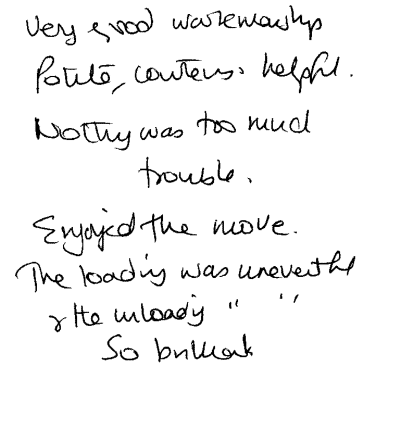 Very good workmanship
Polite, courteous, helpful.
Nothing was too much
trouble.
Enjoyed the move.
The loading was uneventful
& the unloading " "
So brilliant